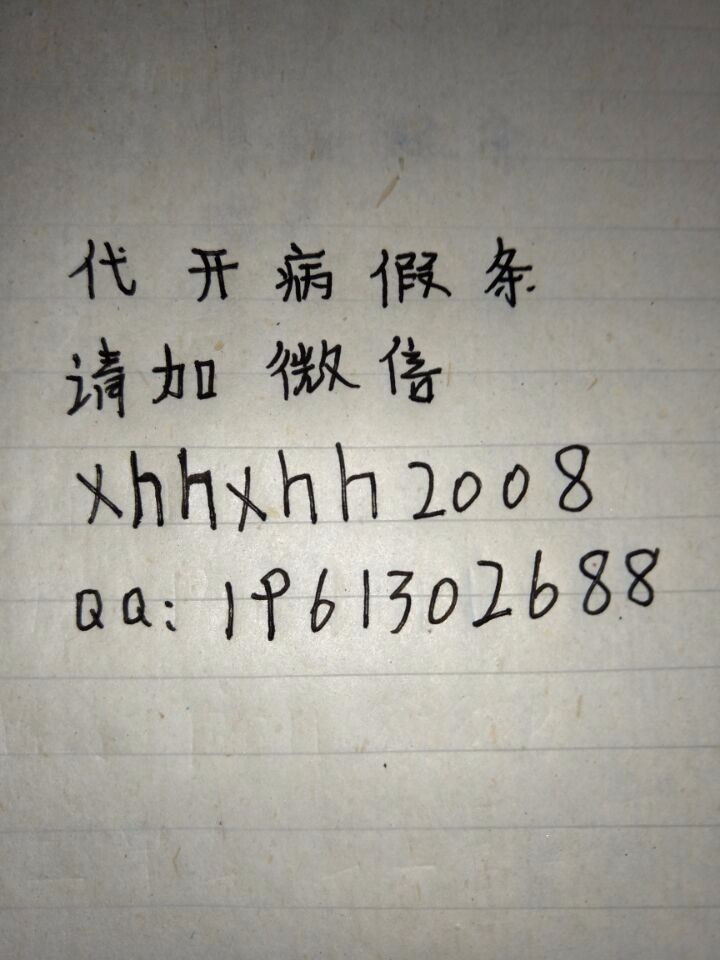 代开病假条
请加微信
xhhxhh2008
QQ:1961302688